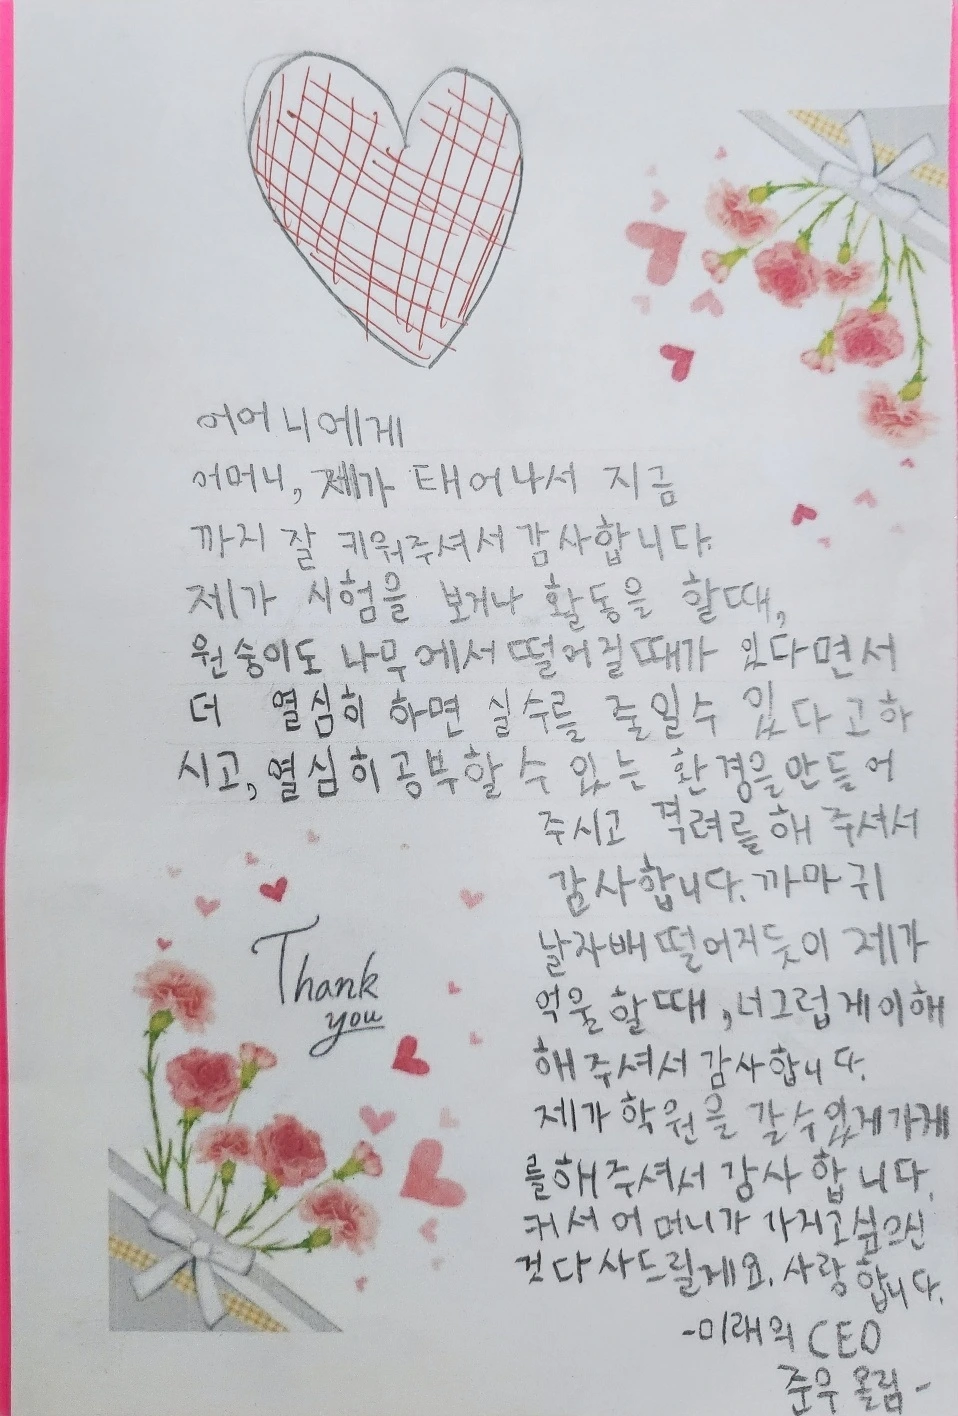 어어니에게
어머니, 제가 태어나서 지금
까지 잘 키워주셔서 감사합니다.
제가 시험을 보거나 활동을 할때,
원숭이도 나무에서 떨어질때가 있다면서
더 열심히 하면 실수를 줄일수 있다고하
시고, 열심히공부할 수 있는 환경을만들어
주시고 격려를해 주셔서
감사합니다. 까마귀
날자배 떨어지듯이 제가
억울할때, 너그럽게이해
해주셔서 감사합니다.
제가 학원을 갈수있게가게
를해주셔서 감사합니다.
커서 어머니가 가지고싶으신
것다사드릴게요. 사랑합니다.
-미래의 CEO
준우 올림-
Thank
you